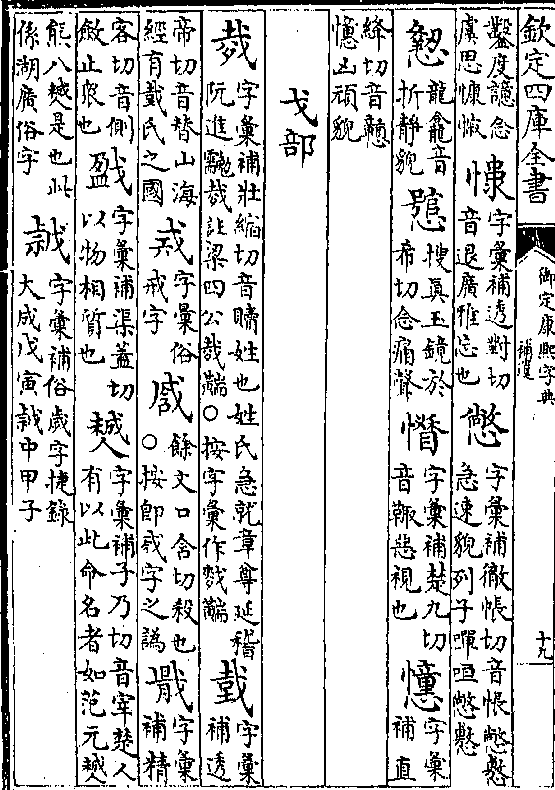 欽定四庫全書
御定康熙字典
補遺
十九
鑿度念
慮思慷慨
字彙補透對切
音退廣雅忘也
憋
字彙補徹帳切音悵憋懯
急速貌列子嘽咺憋懯
龍龕音
折靜貌
搜真玉鏡於
希切念痛聲
字彙補楚九切
音惡視也
字彙
補直
絳切音戇
凶頑貌
戈部
字彙補壯縮切音姓也姓氏急就章尊延稽
阮進註梁四公○按字彙作
字彙
補透
帝切音替山海
經有氏之國
字彙俗
戒字
餘文口含切殺也
○按卽字之譌
字彙
補精
客切音側
斂止也
字彙補渠蓋切
以物相質也
字彙補子乃切音宰楚人
有以此命名者如范元
熊八是也此
係湖廣俗字
字彙補俗歲字捷錄
大成戊寅中甲子